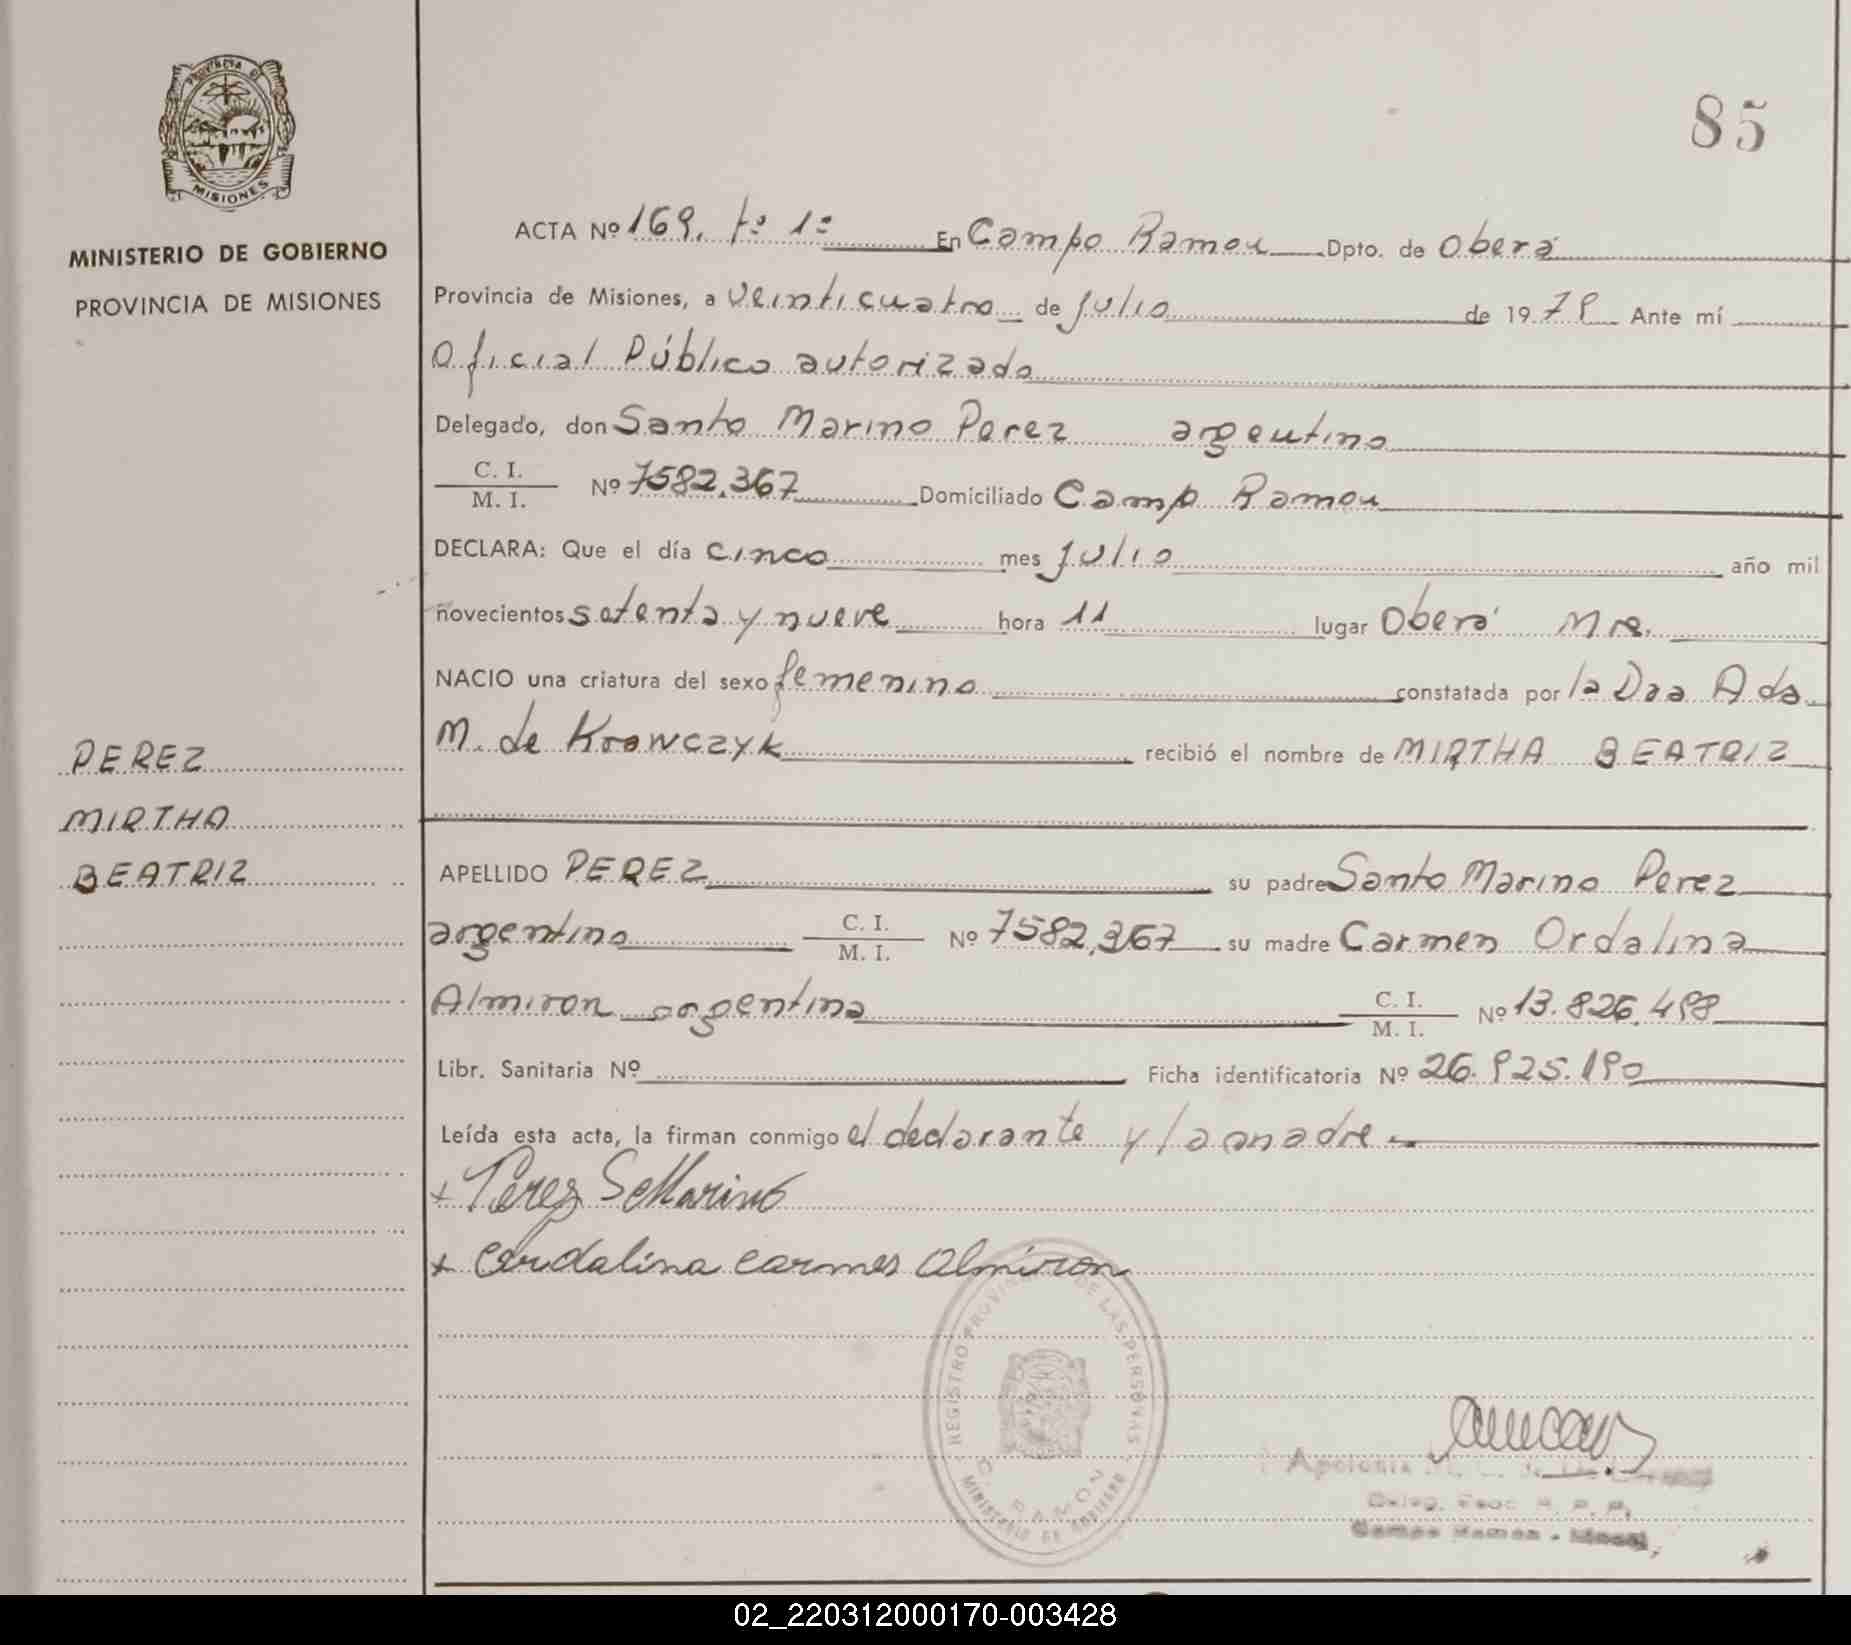 85
PROVINCIA DE
MISIONES
MINISTERIO DE GOBIERNO
PROVINCIA DE MISIONES
ACTA Nº 169. tº 1º En Campo Ramon Dpto. de Oberá
Provincia de Misiones, a veinticuatro de julio de 1979 Ante mí
Oficial Público autorizado
Delegado, don Santo Marino Perez argentino
C. I.
M. I. Nº 7582.367 Domiciliado Camp Ramon
DECLARA: Que el día cinco mes julio año mil
novecientos setenta y nueve hora 11 lugar Oberá Mns.
NACIO una criatura del sexo femenino constatada por la Dra Ada
M. de Krawczyk recibió el nombre de MIRTHA BEATRIZ
PEREZ
MIRTHA
BEATRIZ
APELLIDO PEREZ su padre Santo Marino Perez
argentino C. I.
M. I. Nº 7582.367 su madre Carmen Ordalina
Almiron argentina C. I.
M. I. Nº 13.826.498
Libr. Sanitaria Nº Ficha identificatoria Nº 26.925.190
Leída esta acta, la firman conmigo el declarante y la madre
+ Perez S Marino
+ Ordalina Carmen Almiron
REGISTRO PROVINCIAL DE LAS PERSONAS
C. RAMON
MINISTERIO DE GOBIERNO
Apolonia
Campo Ramon - Misiones
02_220312000170-003428